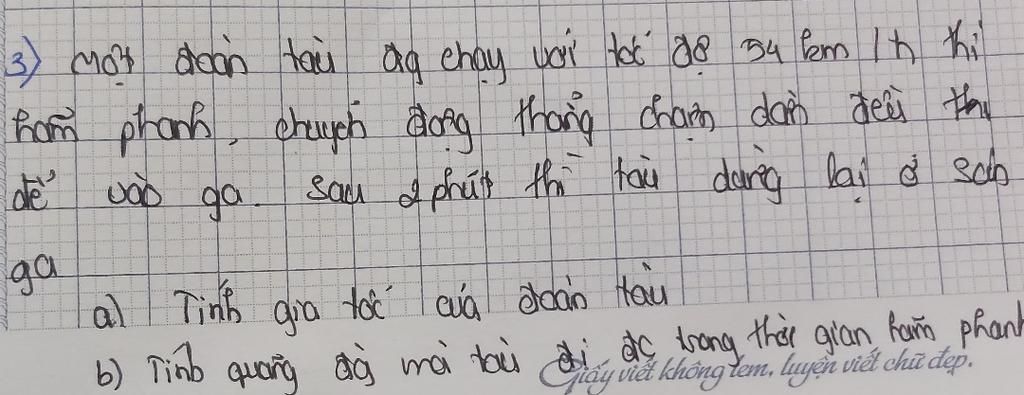 3) Một đoàn tàu đg chạy với tốc độ 54 km/h thì
hãm phanh, chuyển động thẳng chậm dần đều
để vào ga. Sau 2 phút thì tàu dừng lại ở sân
ga
a) Tính gia tốc của đoàn tàu
b) Tính quãng đg mà tàu đi đc trong thời gian hãm phanh
Giấy viết không lem, luyện viết chữ đẹp.